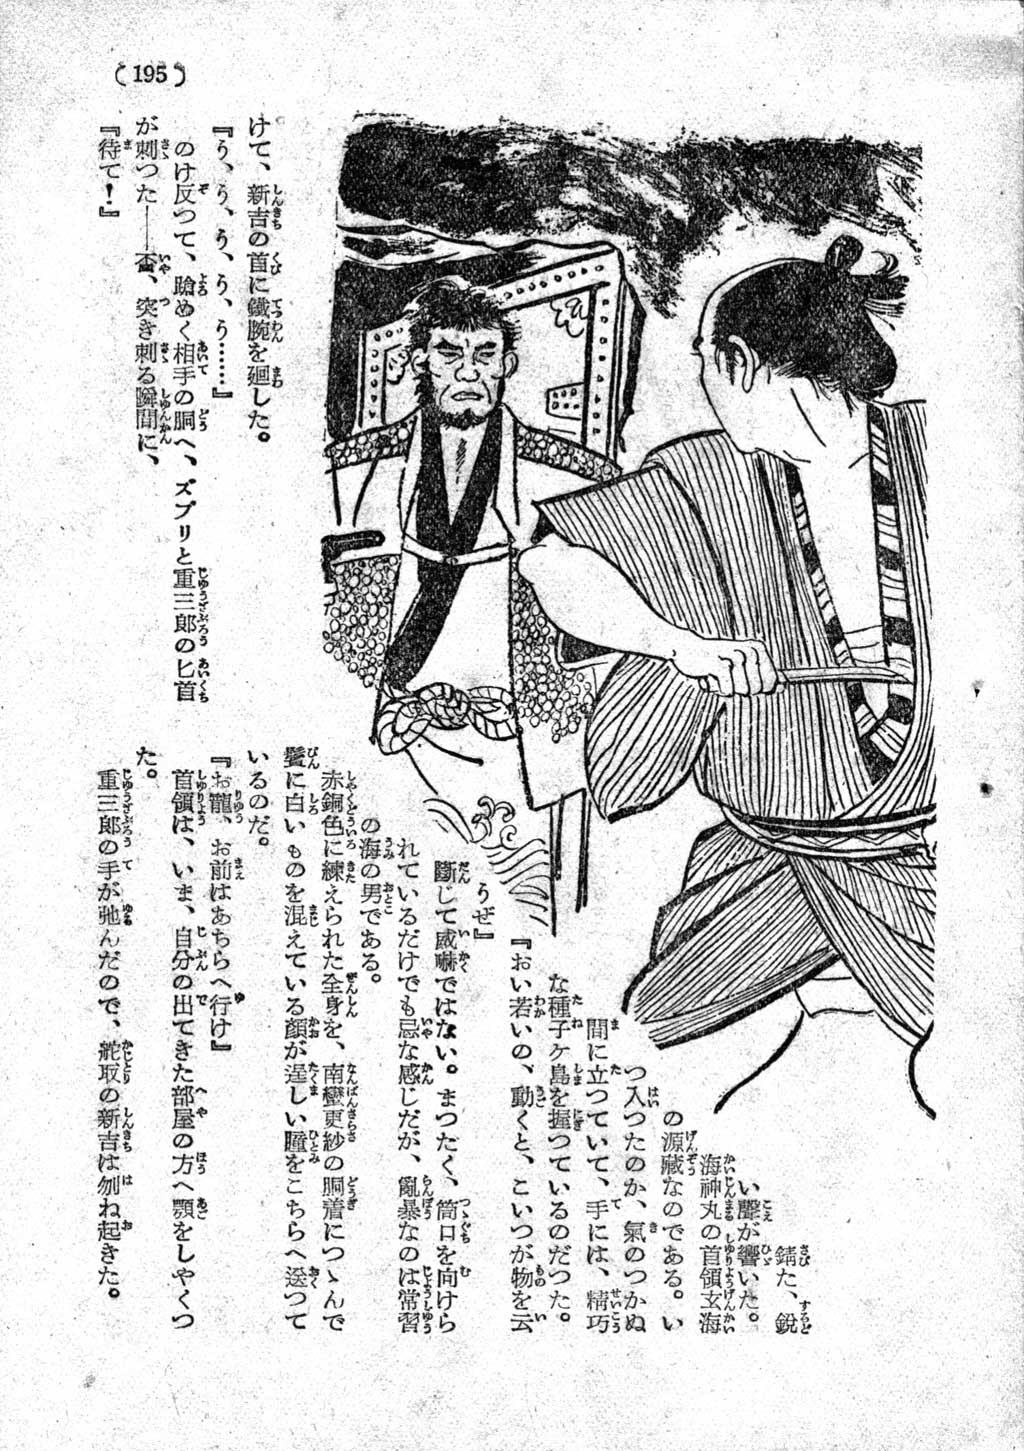 (195)
けて、新吉の首に鐵腕を廻した。
『う、う、う、う、う……』
のけ反つて、蹌めく相手の胴へ、ズブリと重三郎の匕首
が刺つた――否、突き刺る瞬間に、
『待て!』
錆た、鋭
い聲が響いた。
海神丸の首領玄海
の源藏なのである。い
つ入つたのか、氣のつかぬ
間に立つていて、手には、精巧
な種子ケ島を握つているのだつた。
『おい若いの、動くと、こいつが物を云
うぜ』
斷じて威嚇ではない。まつたく、筒口を向けら
れているだけでも忌な感じだが、亂暴なのは常習
の海の男である。
赤銅色に練えられた全身を、南蠻更紗の胴着につゝんで
鬢に白いものを混えている顏が逞しい瞳をこちらへ送つて
いるのだ。
『お龍、お前はあちらへ行け』
首領は、いま、自分の出てきた部屋の方へ顎をしやくつ
た。
重三郎の手が弛んだので、舵取の新吉は刎ね起きた。